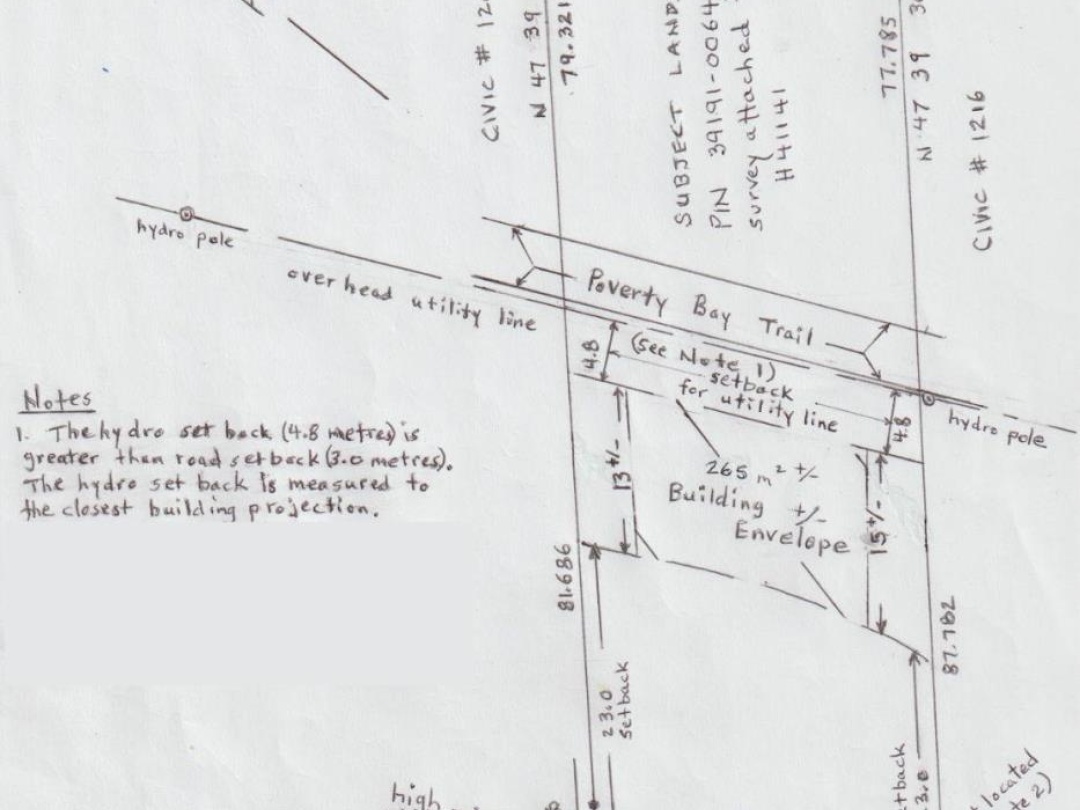 CIVIC # 12
N 47 39
79.321
SUBJECT LAND
PIN 39191-0064
survey attached
H41141
77.785
N 47 39 30
CIVIC # 1216
hydro pole
overhead utility line
Poverty Bay Trail
4.8
(see Note 1)
setback
for utility line
4.8
hydro pole
Notes
1. The hydro set back (4.8 metres) is
greater than road setback (3.0 metres).
The hydro set back is measured to
the closest building projection.
13 +/-
265 m² +/-
Building +/-
Envelope
15 +/-
81.686
87.782
23.0
setback
setback
3.0
high
located
2)